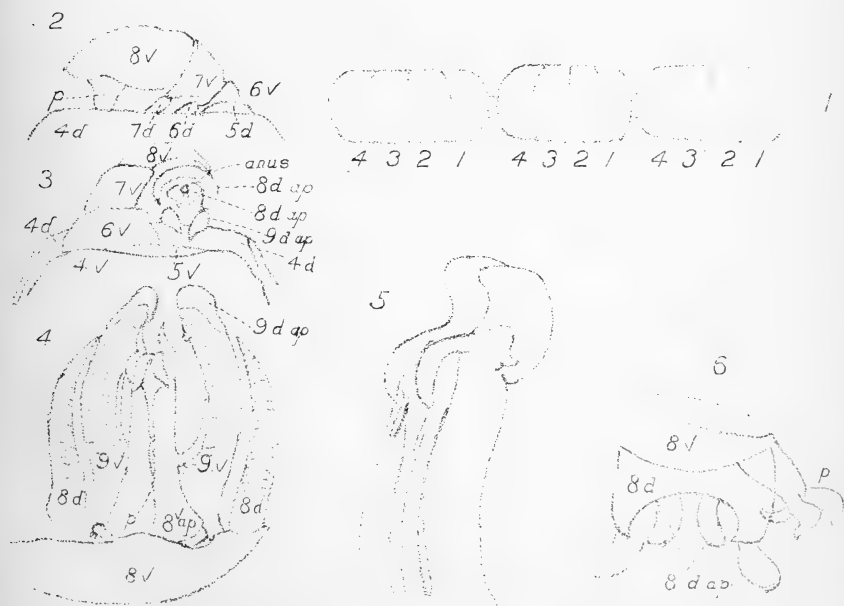 2
8v
7v
6v
p
4d
7d
6d
5d
1
4 3 2 1
4 3 2 1
4 3 2 1
3
8v
anus
7v
8d ap
8d ap
9d ap
4d
6v
4d
4v
5v
4
9d ap
9v
9v
8d
p
8v ap
8d
8v
5
6
8v
8d
p
8 d ap